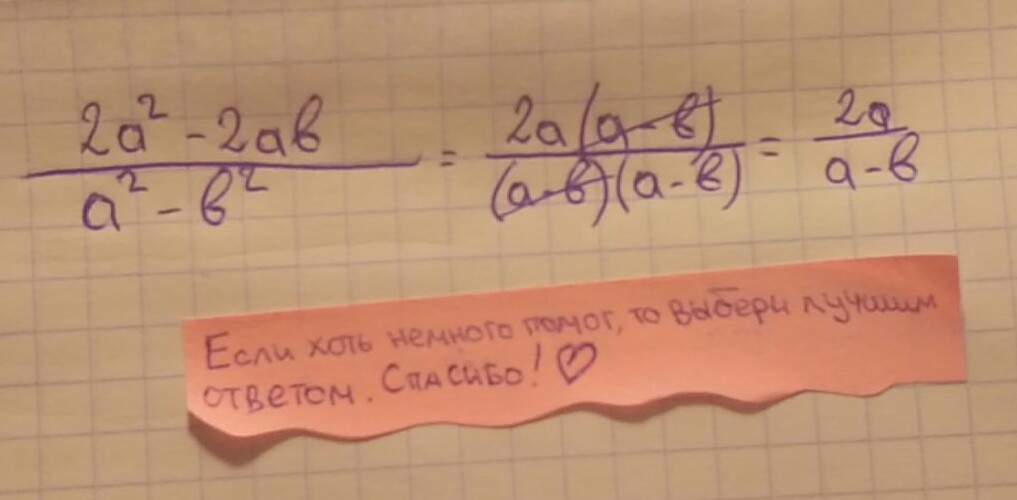 (2a² - 2ab)/(a² - b²) = (2a(a-b))/((a-b)(a-b)) = 2a/(a-b)
Если хоть немного помог, то выбери лучшим
ответом. Спасибо! ♡